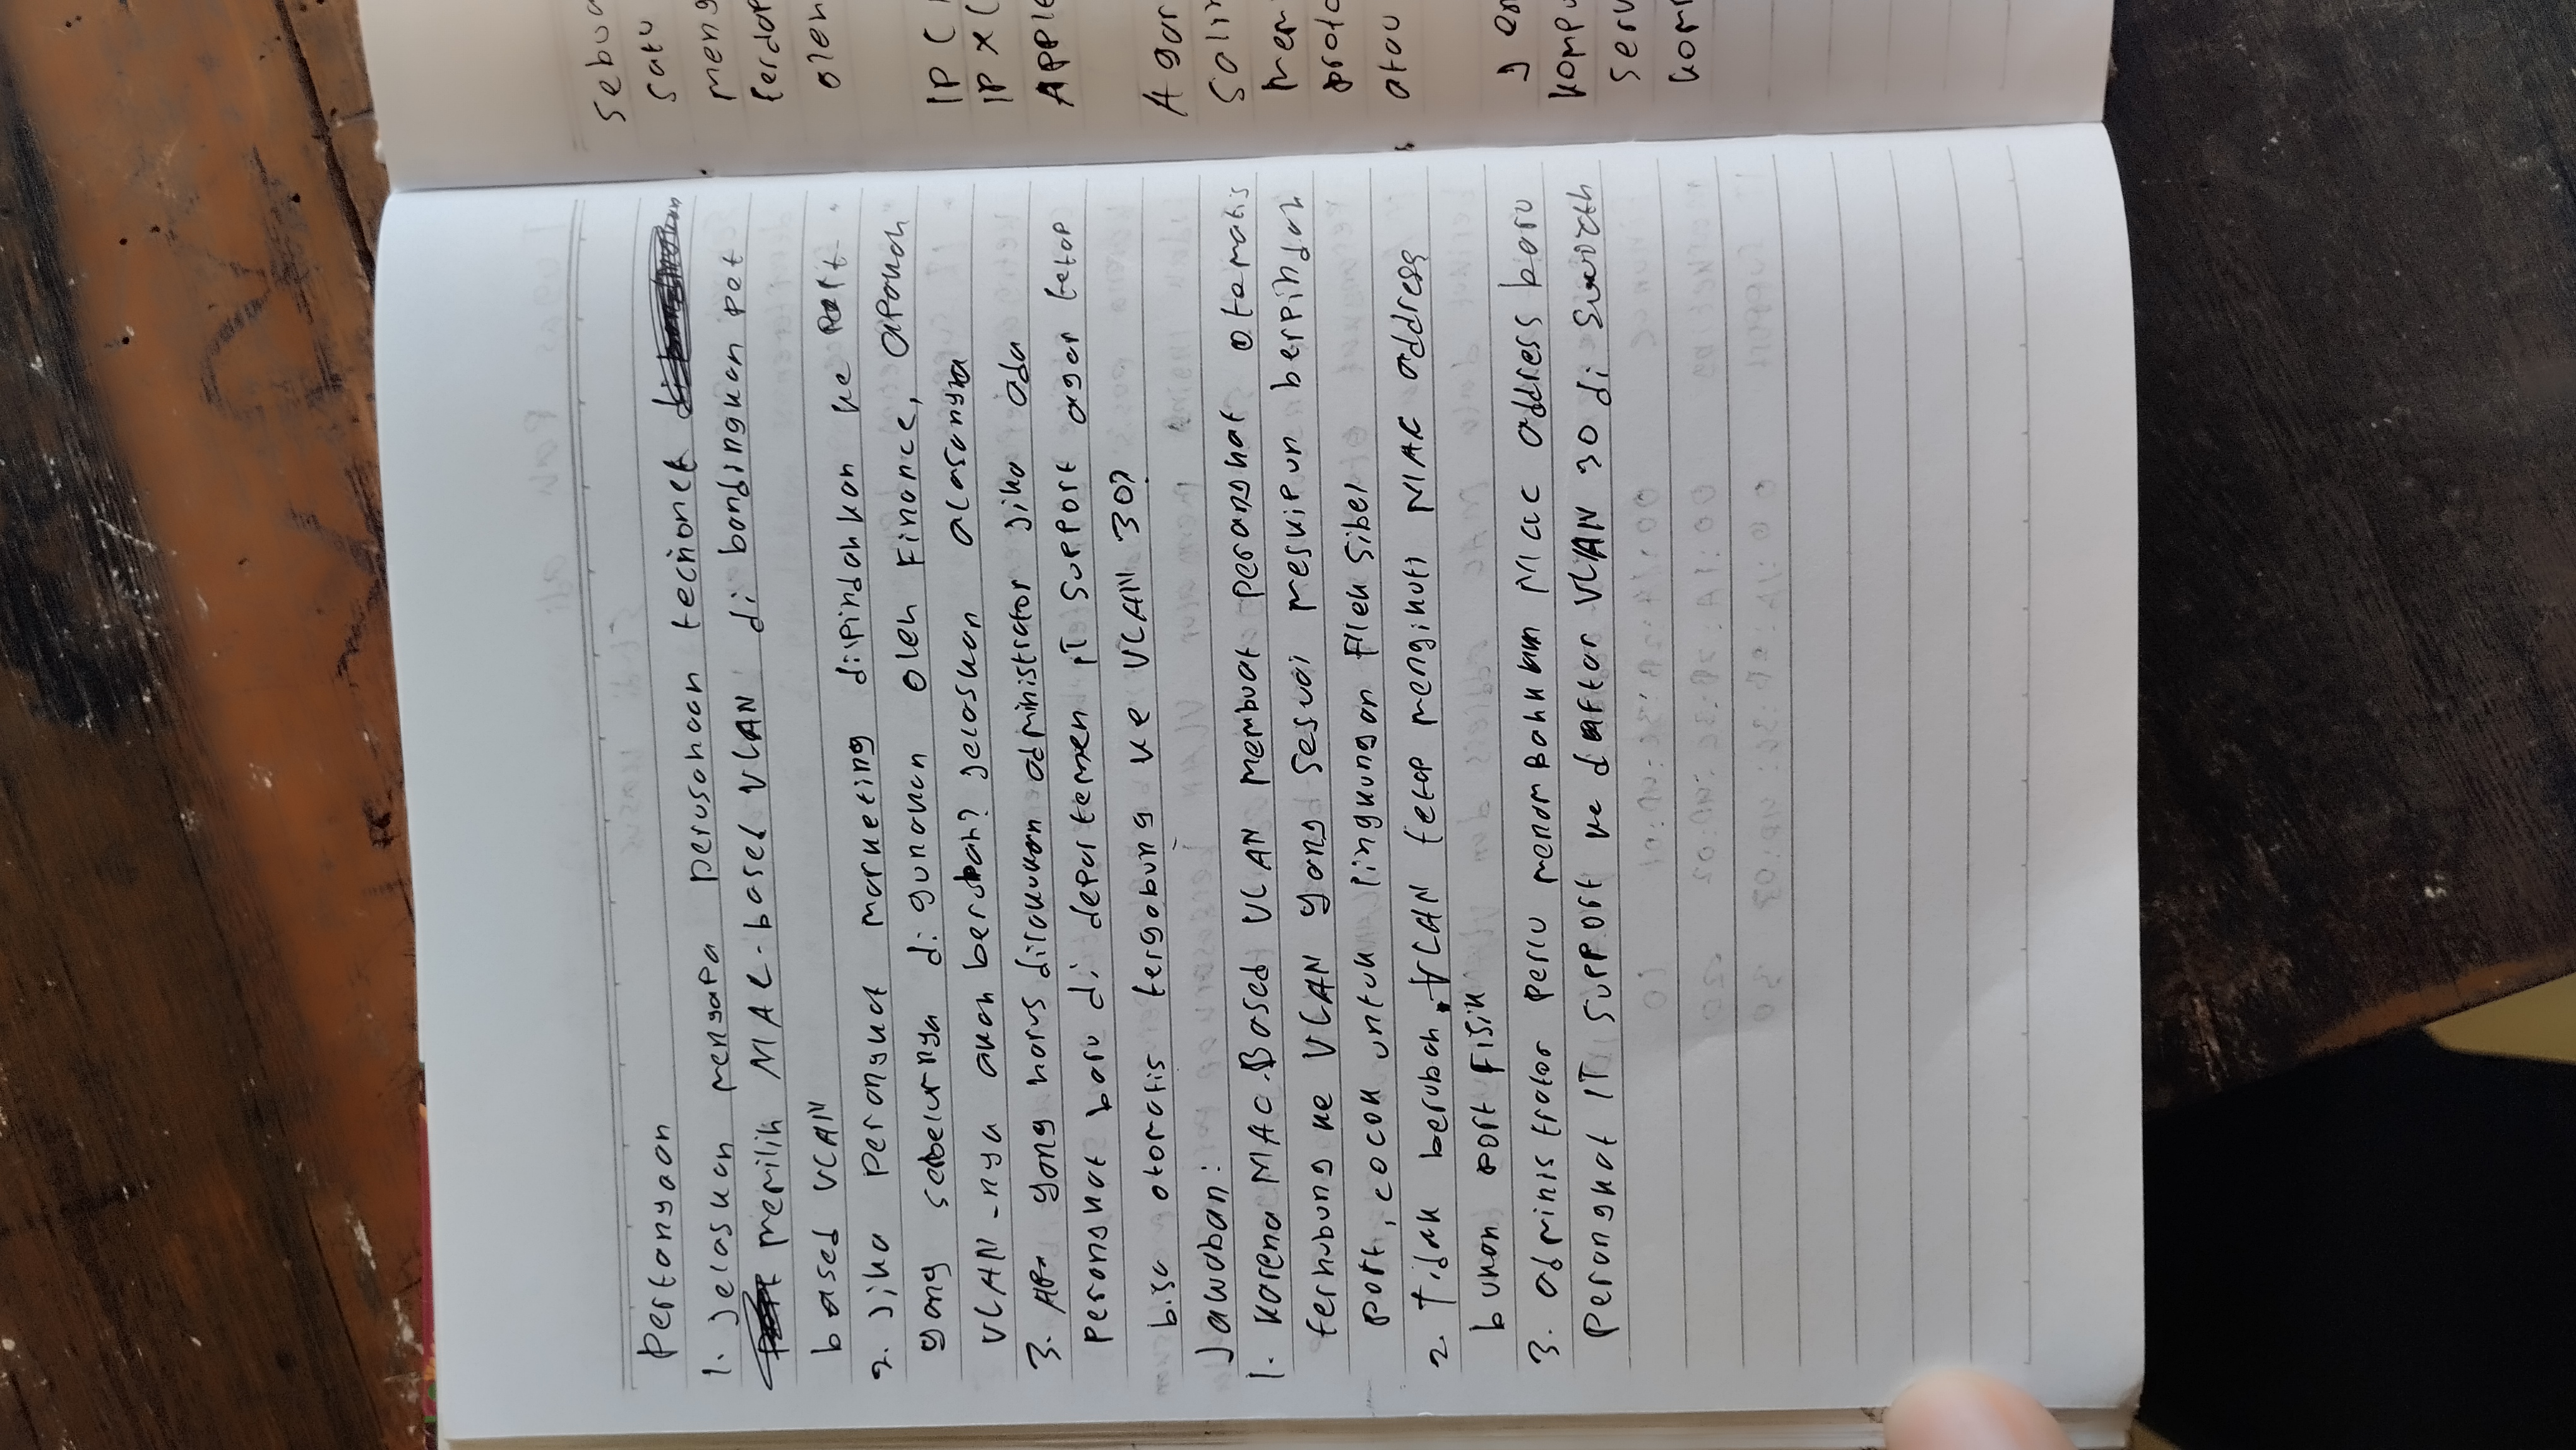 Pertanyaan
1. Jelaskan mengapa perusahaan tecnonet
memilih MAC-based VLAN di bandingkan pot
based VLAN
2. Jika perangkat marketing dipindahkan ke Port
yang sebelumnya di gunakan oleh Finance, apakah
VLAN-nya akan berubah? Jelaskan alasannya
3. Apa yang harus dilakukan administrator jika ada
perangkat baru di departemen IT Support agar tetap
bisa otomatis tergabung ke VLAN 30?
Jawaban:
1. Karena MAC-Based VLAN membuat perangkat otomatis
terhubung ke VLAN yang sesuai meskipun berpindah
port, cocok untuk lingkungan fleksibel
2. Tidak berubah. VLAN tetap mengikuti MAC address
bukan port fisik
3. administrator perlu menambahkan Mac address baru
Perangkat IT Support ke daftar VLAN 30 di Switch
sebua
satu
meng
terdap
oleh
IP (
IPX (
APPLE
Agar
Salin
Mem
proto
atau
komp
serv
kom